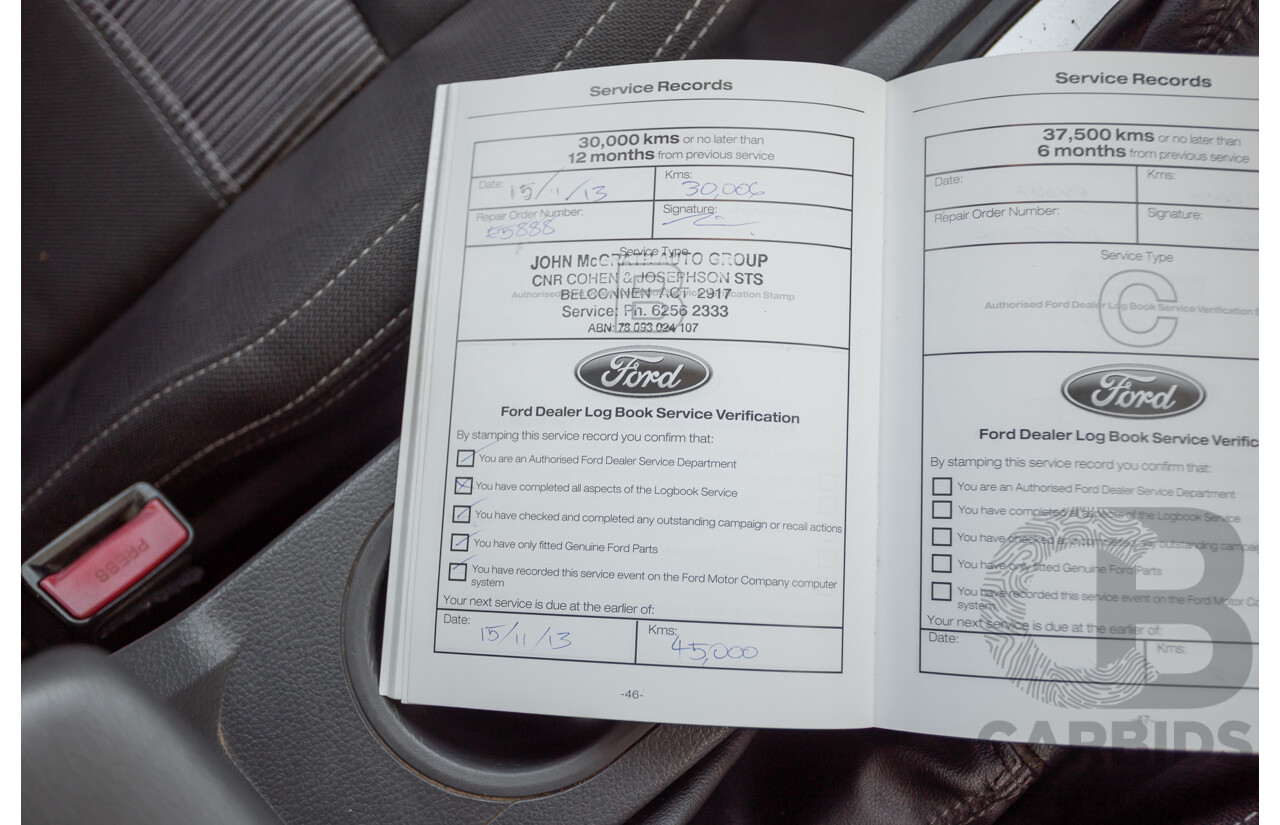 Service Records
30,000 kms or no later than
12 months from previous service
Date: 15/11/13
Kms: 30,006
Repair Order Number: 5888
Signature:
Service Type
B
JOHN McGRATH AUTO GROUP
CNR COHEN & JOSEPHSON STS
Authorised Ford Dealer Log Book Service Verification Stamp
BELCONNEN ACT 2917
Service: Ph. 6256 2333
ABN: 78 093 024 107
Ford
Ford Dealer Log Book Service Verification
By stamping this service record you confirm that:
You are an Authorised Ford Dealer Service Department
You have completed all aspects of the Logbook Service
You have checked and completed any outstanding campaign or recall actions
You have only fitted Genuine Ford Parts
You have recorded this service event on the Ford Motor Company computer
system
Your next service is due at the earlier of:
Date: 15/11/13
Kms: 45,000
-46-
Service Records
37,500 kms or no later than
6 months from previous service
Date:
Kms:
Repair Order Number:
Signature:
Service Type
C
Authorised Ford Dealer Log Book Service Verification
Ford
Ford Dealer Log Book Service Verific
By stamping this service record you confirm that:
You are an Authorised Ford Dealer Service Department
You have completed all aspects of the Logbook Service
You have checked and completed any outstanding campaig
You have only fitted Genuine Ford Parts
You have recorded this service event on the Ford Motor Co
system
Your next service is due at the earlier of:
Date:
Kms:
CARBIDS
PRESS